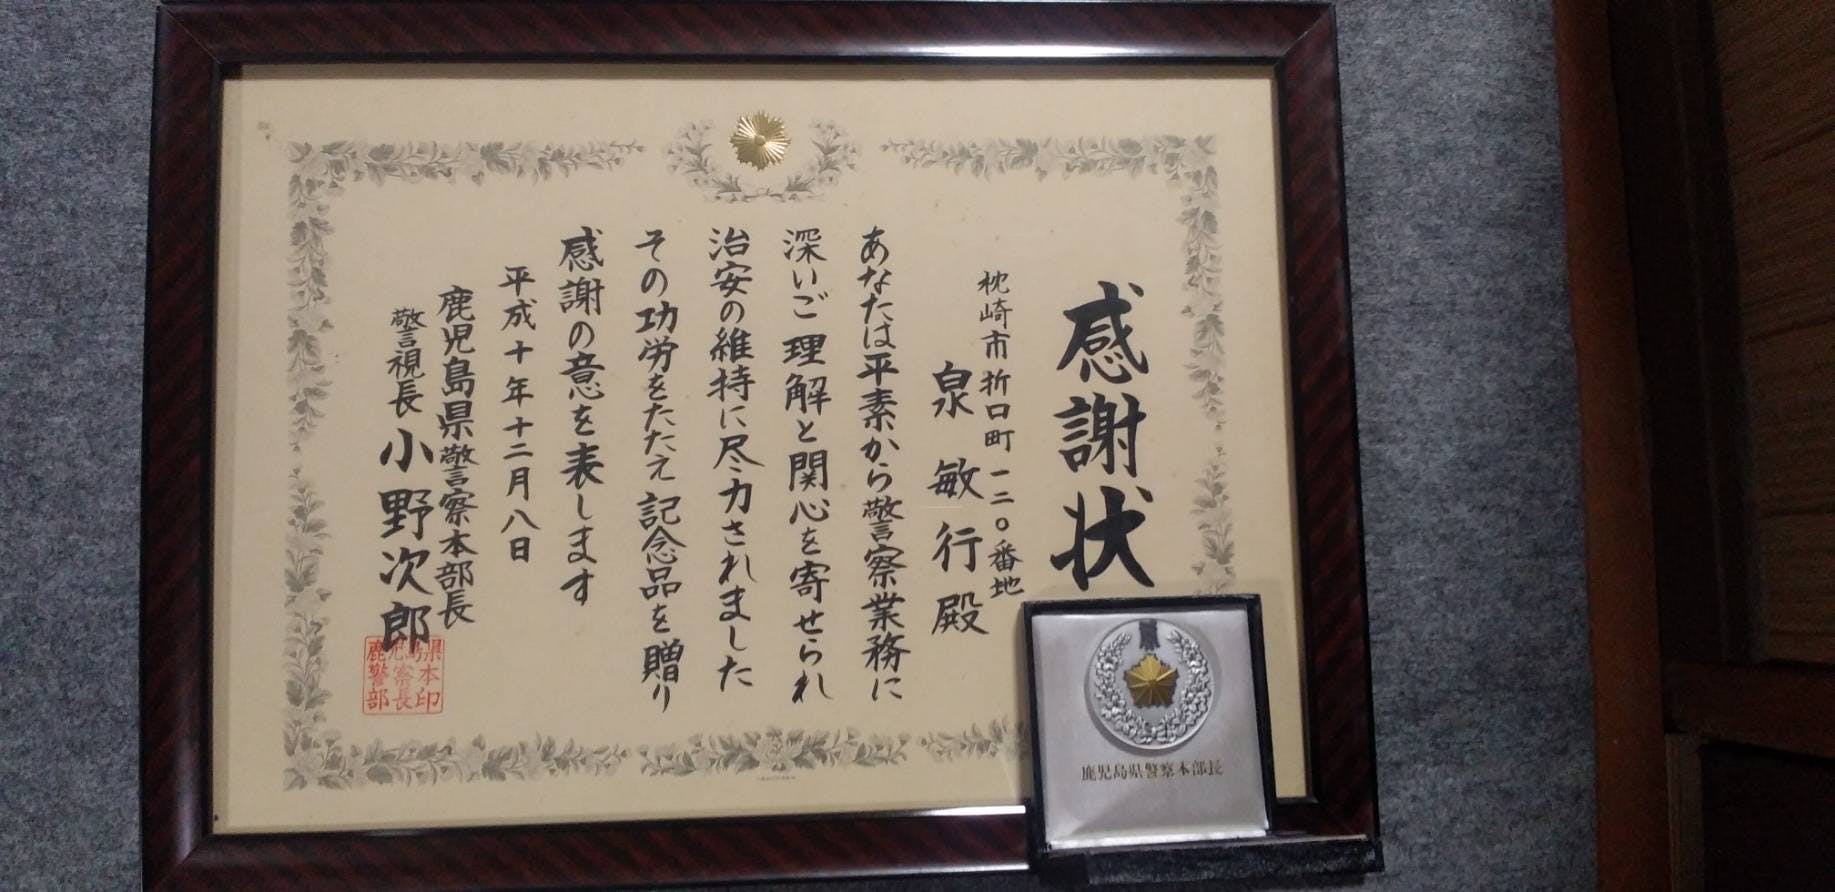 感謝状
枕崎市折口町一二〇番地
泉敏行殿
あなたは平素から警察業務に
深いご理解と関心を寄せられ
治安の維持に尽力されました
その功労をたたえ記念品を贈り
感謝の意を表します
平成十年十二月八日
鹿児島県警察本部長
警視長 小野次郎
鹿児島県警察本部長印
鹿児島県警察本部長